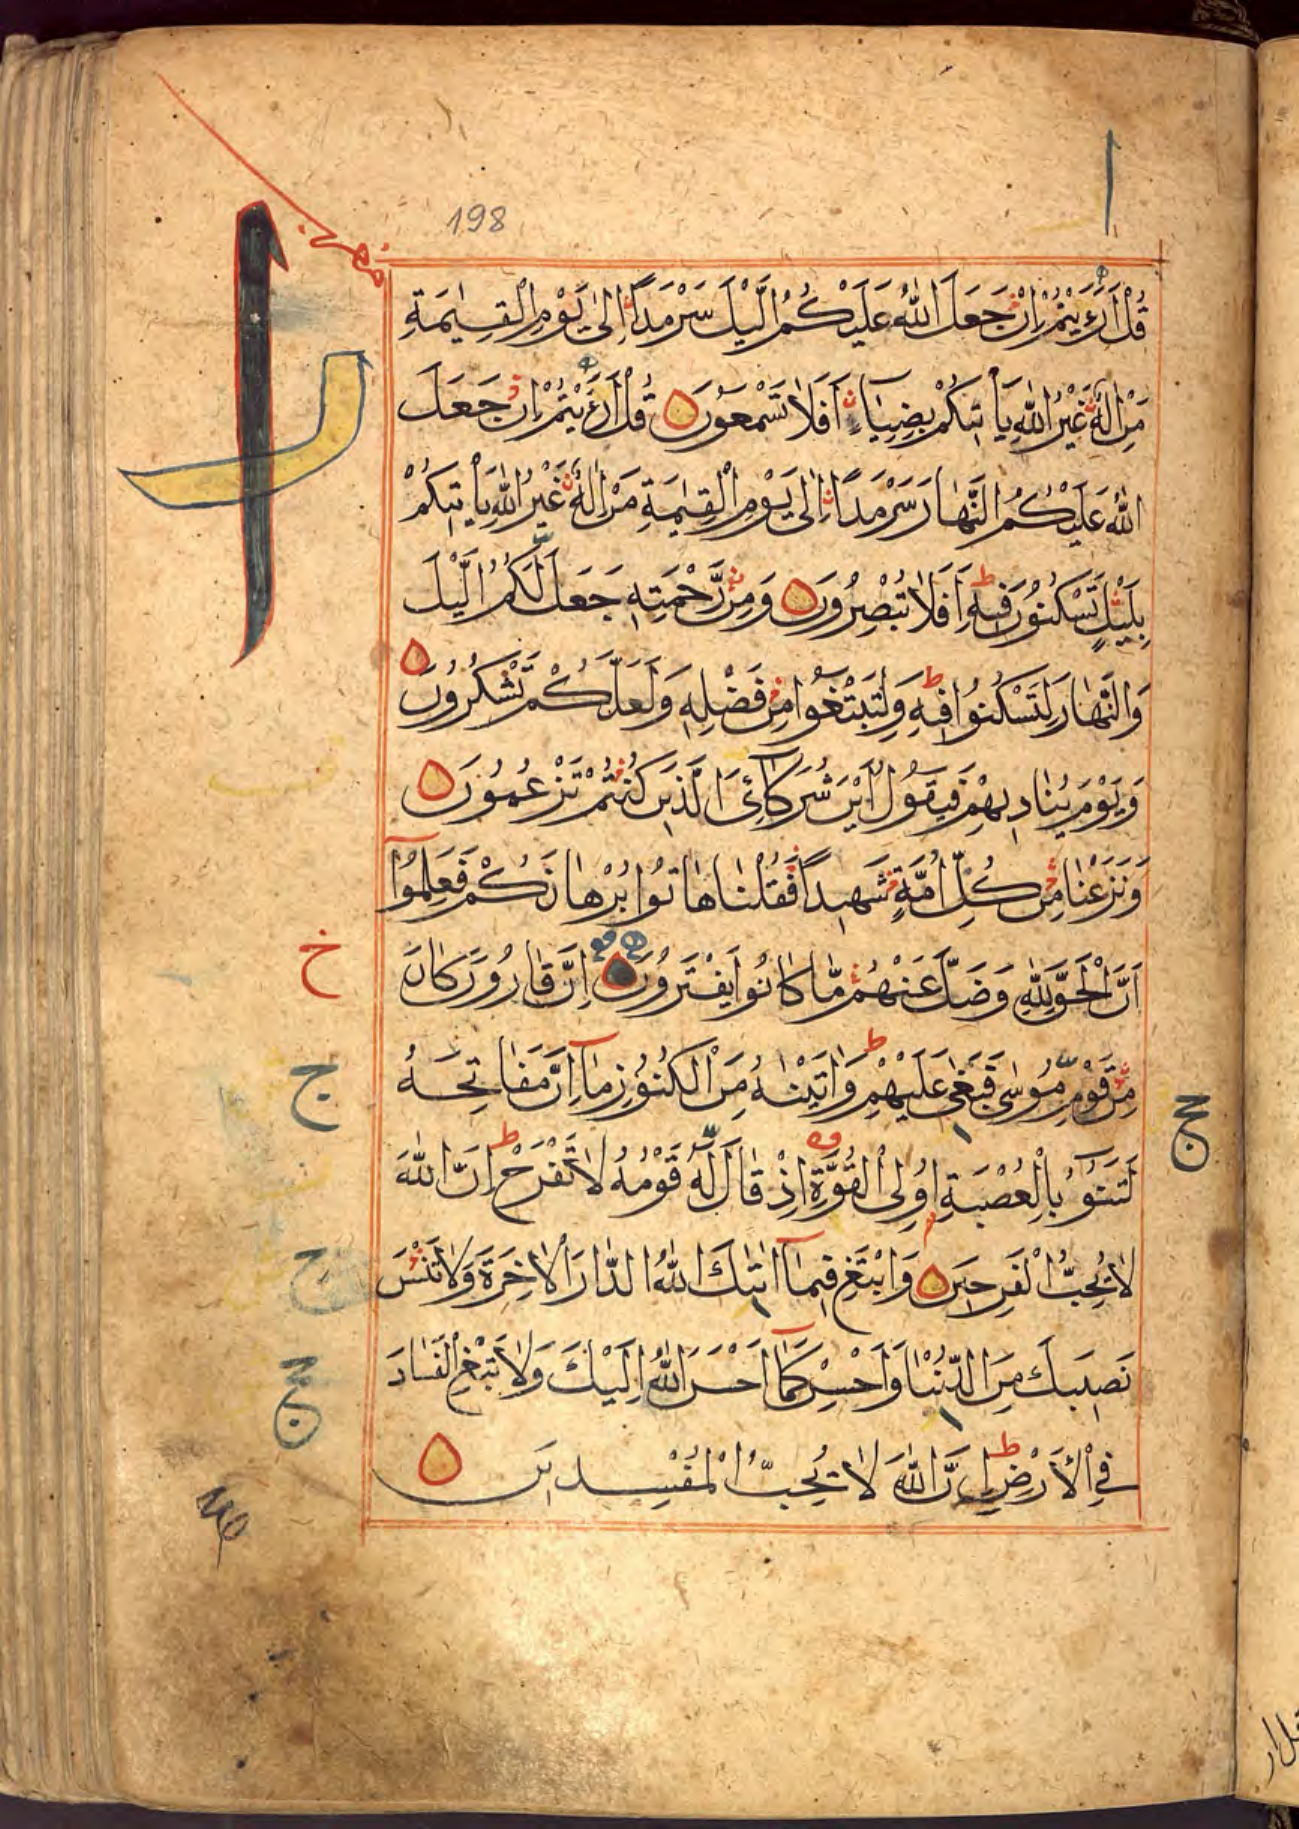 198
قُلْ اَرَءَيْتُمْ اِنْ جَعَلَ اللهُ عَلَيْكُمُ الَّيْلَ سَرْمَدًا اِلٰى يَوْمِ الْقِيٰمَةِ
مَنْ اِلٰهٌ غَيْرُ اللهِ يَاْتِيْكُمْ بِضِيَاءٍ اَفَلَا تَسْمَعُوْنَ قُلْ اَرَءَيْتُمْ اِنْ جَعَلَ
اللهُ عَلَيْكُمُ النَّهَارَ سَرْمَدًا اِلٰى يَوْمِ الْقِيٰمَةِ مَنْ اِلٰهٌ غَيْرُ اللهِ يَاْتِيْكُمْ
بِلَيْلٍ تَسْكُنُوْنَ فِيْهِ اَفَلَا تُبْصِرُوْنَ وَمِنْ رَّحْمَتِهٖ جَعَلَ لَكُمُ الَّيْلَ
وَالنَّهَارَ لِتَسْكُنُوْا فِيْهِ وَلِتَبْتَغُوْا مِنْ فَضْلِهٖ وَلَعَلَّكُمْ تَشْكُرُوْنَ
وَيَوْمَ يُنَادِيْهِمْ فَيَقُوْلُ اَيْنَ شُرَكَآئِيَ الَّذِيْنَ كُنْتُمْ تَزْعُمُوْنَ
وَنَزَعْنَا مِنْ كُلِّ اُمَّةٍ شَهِيْدًا فَقُلْنَا هَاتُوْا بُرْهَانَكُمْ فَعَلِمُوْٓا
اَنَّ الْحَقَّ لِلهِ وَضَلَّ عَنْهُمْ مَّا كَانُوْا يَفْتَرُوْنَ اِنَّ قَارُوْنَ كَانَ
مِنْ قَوْمِ مُوْسٰى فَبَغٰى عَلَيْهِمْ وَاٰتَيْنٰهُ مِنَ الْكُنُوْزِ مَآ اِنَّ مَفَاتِحَهُ
لَتَنُوْٓءُ بِالْعُصْبَةِ اُولِى الْقُوَّةِ اِذْ قَالَ لَهٗ قَوْمُهٗ لَا تَفْرَحْ اِنَّ اللهَ
لَا يُحِبُّ الْفَرِحِيْنَ وَابْتَغِ فِيْمَآ اٰتٰىكَ اللهُ الدَّارَ الْاٰخِرَةَ وَلَا تَنْسَ
نَصِيْبَكَ مِنَ الدُّنْيَا وَاَحْسِنْ كَمَآ اَحْسَنَ اللهُ اِلَيْكَ وَلَا تَبْغِ الْفَسَادَ
فِى الْاَرْضِ اِنَّ اللهَ لَا يُحِبُّ الْمُفْسِدِيْنَ